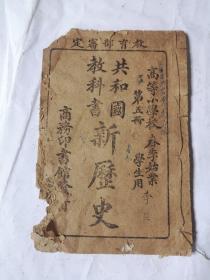 教育部審定
高等小學校 春季始業
學生用
第五冊
共和國
教科書
新歷史
商務印書館